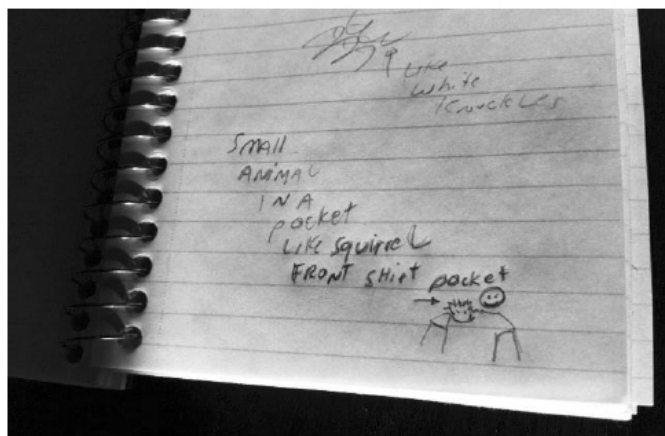 Like
white
knuckles
SMALL
ANIMAL
IN A
pocket
Like squirrel
FRONT shirt pocket